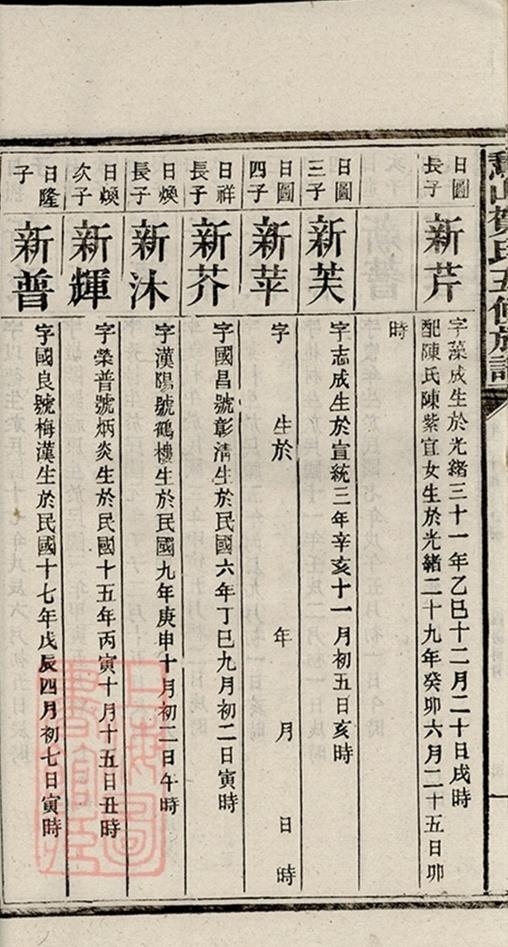 賀氏五修族譜
日圖長子
新芹
字藻成生於光緒三十一年乙巳十二月二十日戌時
配陳氏陳紫宜女生於光緒二十九年癸卯六月二十五日卯
時
日圖三子
新芙
字志成生於宣統三年辛亥十一月初五日亥時
日圖四子
新苹
字 生於 年 月 日 時
日祥長子
新芥
字國昌號彰清生於民國六年丁巳九月初二日寅時
日煥長子
新沐
字漢陽號鶴樓生於民國九年庚申十月初二日午時
日煥次子
新輝
字榮普號炳炎生於民國十五年丙寅十月十五日丑時
日隆子
新普
字國良號梅漢生於民國十七年戊辰四月初七日寅時